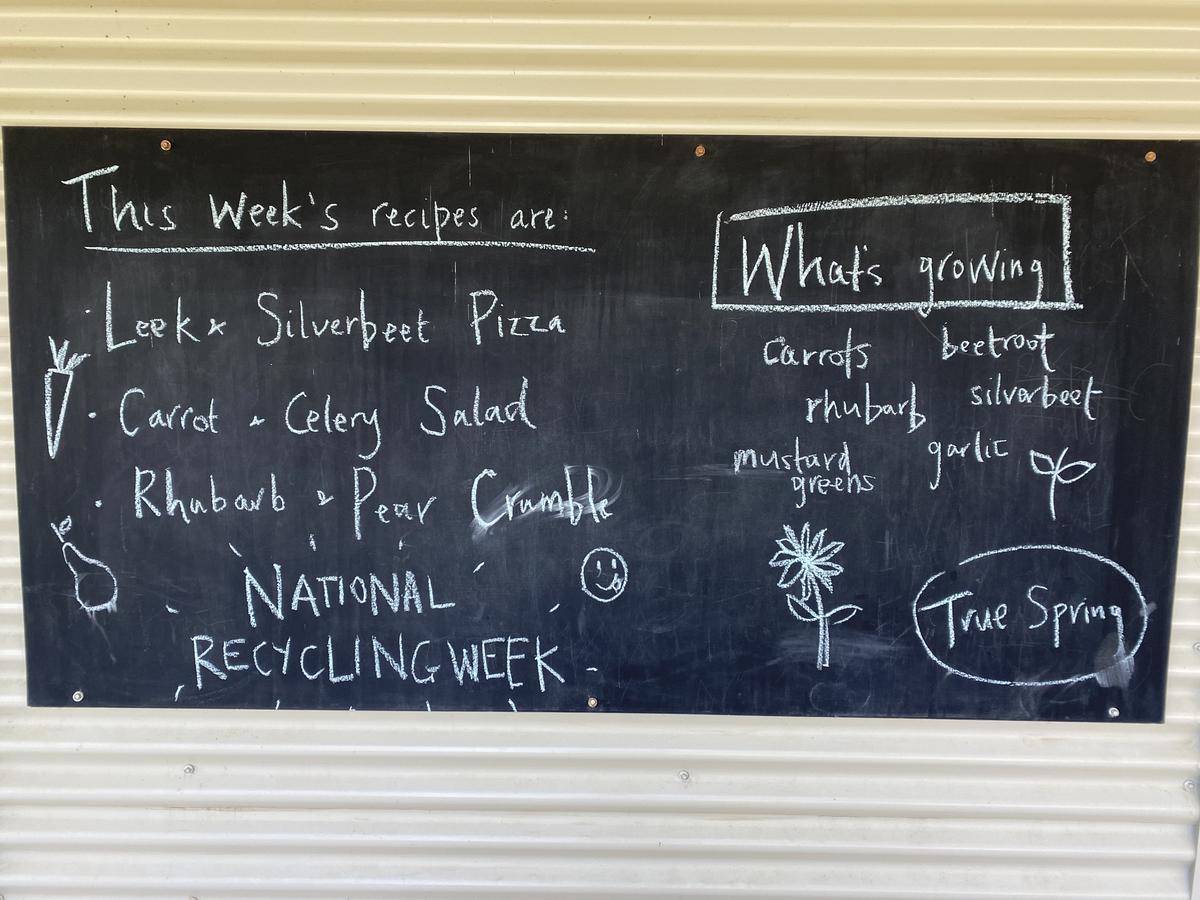 This Week's recipes are:
· Leek & Silverbeet Pizza
· Carrot & Celery Salad
· Rhubarb & Pear Crumble
NATIONAL
RECYCLING WEEK
What's growing
carrots beetroot
rhubarb silverbeet
mustard garlic
greens
True Spring